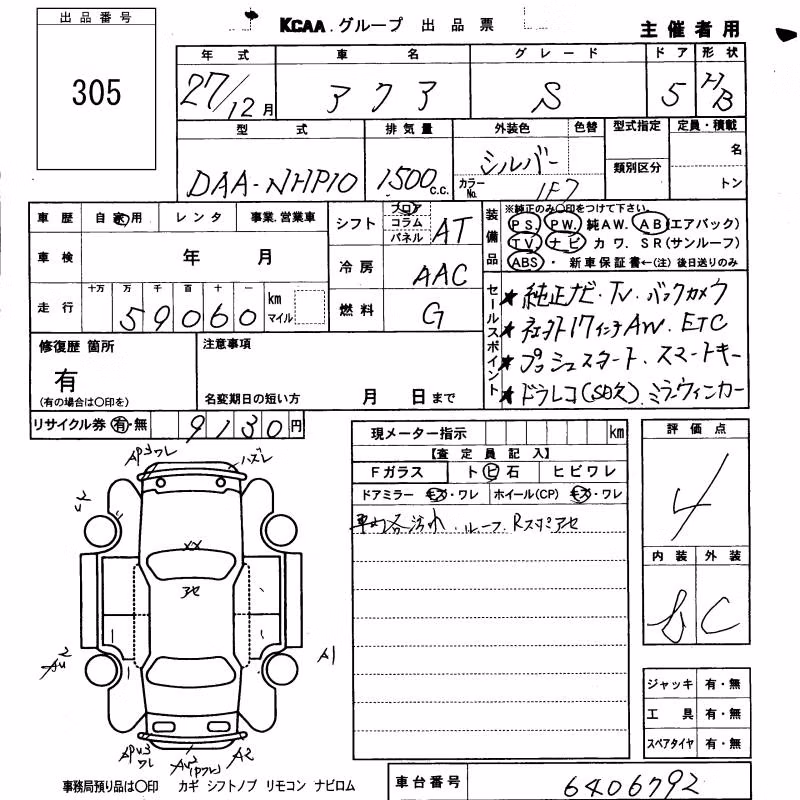 出品番号
305
KCAA.グループ 出品票
主催者用
年式 車名 グレード ドア 形状
27/12月 アクア S 5 H/B
型式 排気量 外装色 色替 型式指定 定員・積載
DAA-NHP10 1500c.c. シルバー 名
カラーNo. 1F7 類別区分 トン
車歴 自家用 レンタ 事業.営業車
車検 年 月
走行 十万 万 千 百 十 一
59060 km マイル
シフト フロア コラム パネル AT
冷房 AAC
燃料 G
装備品
※純正のみ〇印をつけて下さい。
PS. PW. 純AW. AB(エアバック)
TV. ナビ カワ. SR(サンルーフ)
ABS・新車保証書←(注)後日送りのみ
セールスポイント
★純正ナビ・TV・バックカメラ
★社外17インチAW. ETC
★プッシュスタート. スマートキー
★ドラレコ(SD欠). ミラーウィンカー
修復歴 箇所
有
(有の場合は〇印を)
注意事項
名変期日の短い方 月 日まで
リサイクル券 有・無 9130円
現メーター指示 km
【査定員記入】
Fガラス トビ石 ヒビワレ
ドアミラー キズ・ワレ ホイール(CP) キズ・ワレ
車内各汚れ. ルーフ. Rスポアセ
評価点
4
内装 外装
B C
ジャッキ 有・無
工具 有・無
スペアタイヤ 有・無
AP3ワレ ハズレ
XX
アセ
2
AU2
A1
APU3ワレ
AU2(Pワレ)
A2
事務局預り品は〇印 カギ シフトノブ リモコン ナビロム
車台番号 6406792